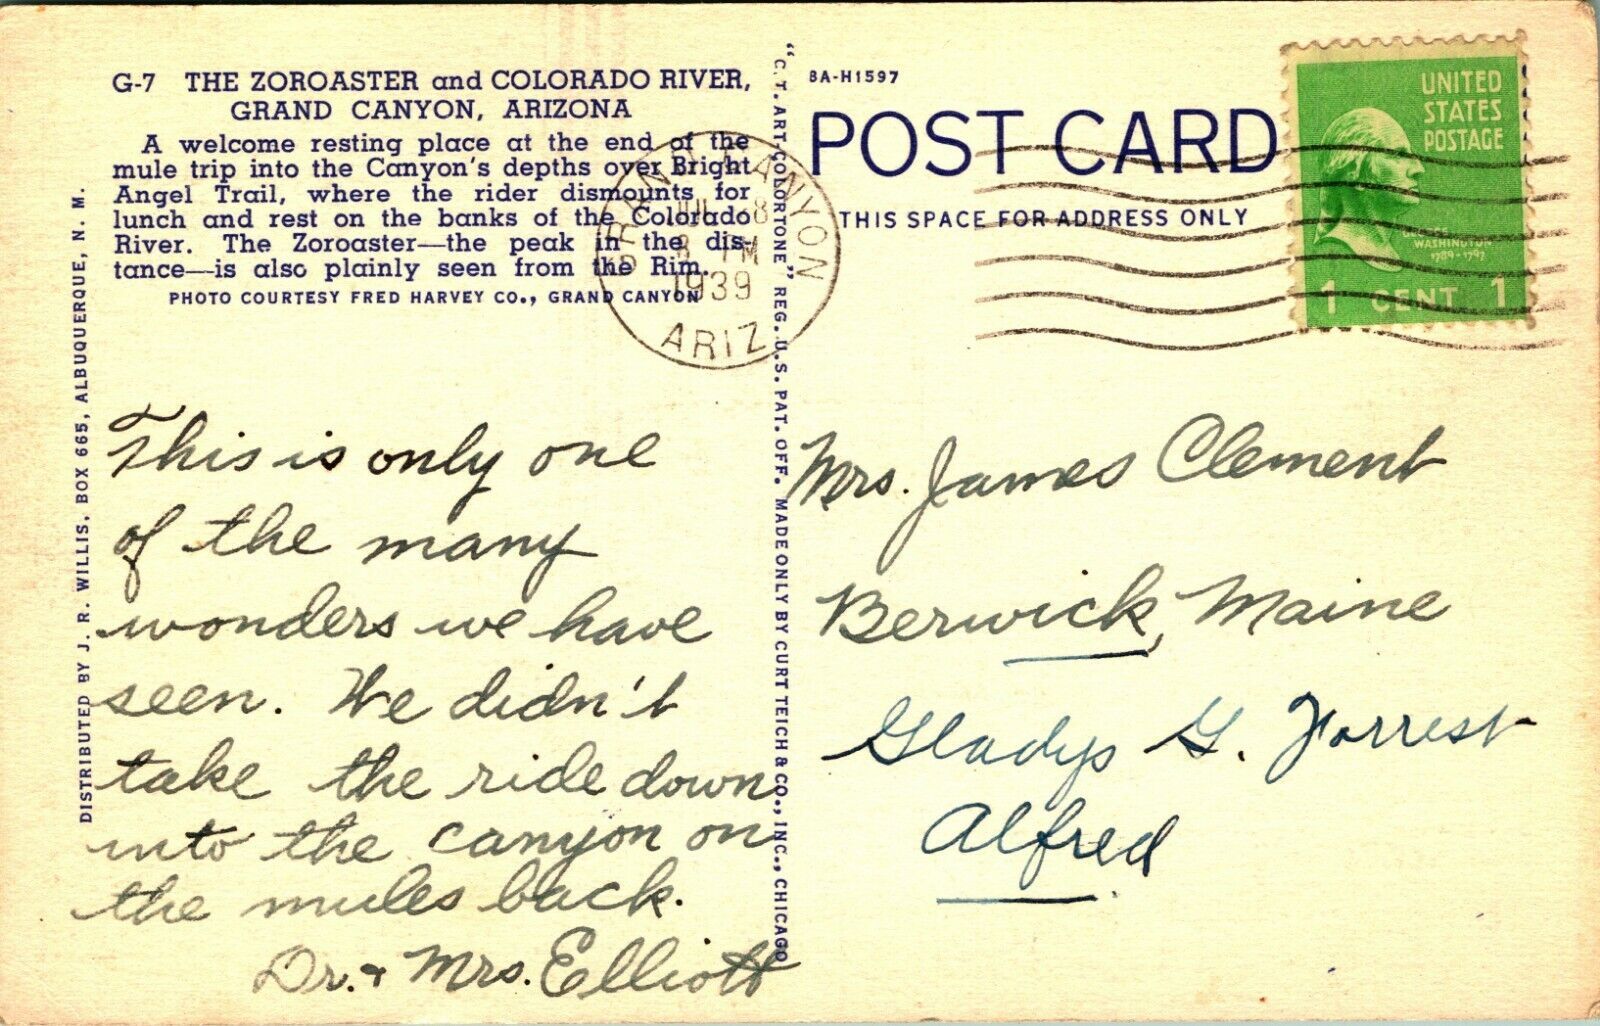 G-7 THE ZOROASTER and COLORADO RIVER,
GRAND CANYON, ARIZONA
A welcome resting place at the end of the
mule trip into the Canyon's depths over Bright
Angel Trail, where the rider dismounts for
lunch and rest on the banks of the Colorado
River. The Zoroaster—the peak in the dis-
tance—is also plainly seen from the Rim.
PHOTO COURTESY FRED HARVEY CO., GRAND CANYON
DISTRIBUTED BY J. R. WILLIS, BOX 665, ALBUQUERQUE, N. M.
This is only one
of the many
wonders we have
seen. We didn't
take the ride down
into the canyon on
the mules back.
Dr. & Mrs. Elliott
"C. T. ART-COLORTONE" REG. U.S. PAT. OFF. MADE ONLY BY CURT TEICH & CO., INC., CHICAGO
GRAND CANYON
JUL 8
PM
1939
ARIZ
8A-H1597
POST CARD
THIS SPACE FOR ADDRESS ONLY
UNITED
STATES
POSTAGE
WASHINGTON
1789-1797
1 CENT 1
Mrs. James Clement
Berwick, Maine
Gladys G. Forrest
Alfred